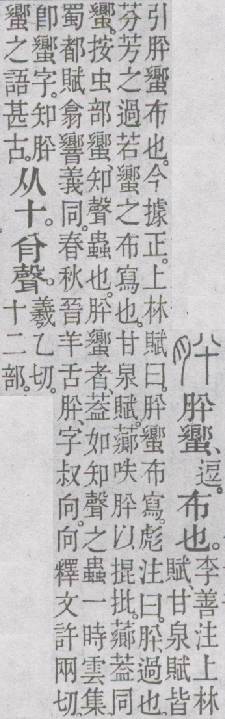 肸蠁、逗。布也。
李善注上林
賦、甘泉賦皆
引肸蠁布也。今據正。上林賦曰。肸蠁布寫。彪注曰。肸、過也。
芬芳之過若蠁之布寫也。甘泉賦。薌呹肸以掍批。薌葢同
蠁。按虫部蠁知聲蟲也。肸蠁者、葢如知聲之蟲一時雲集
蜀都賦翕響義同。春秋晉羊舌肸、字叔向。向釋文許兩切。
卽蠁字。知肸
蠁之語甚古。
从十。䏌聲。
羲乙切。
十二部。